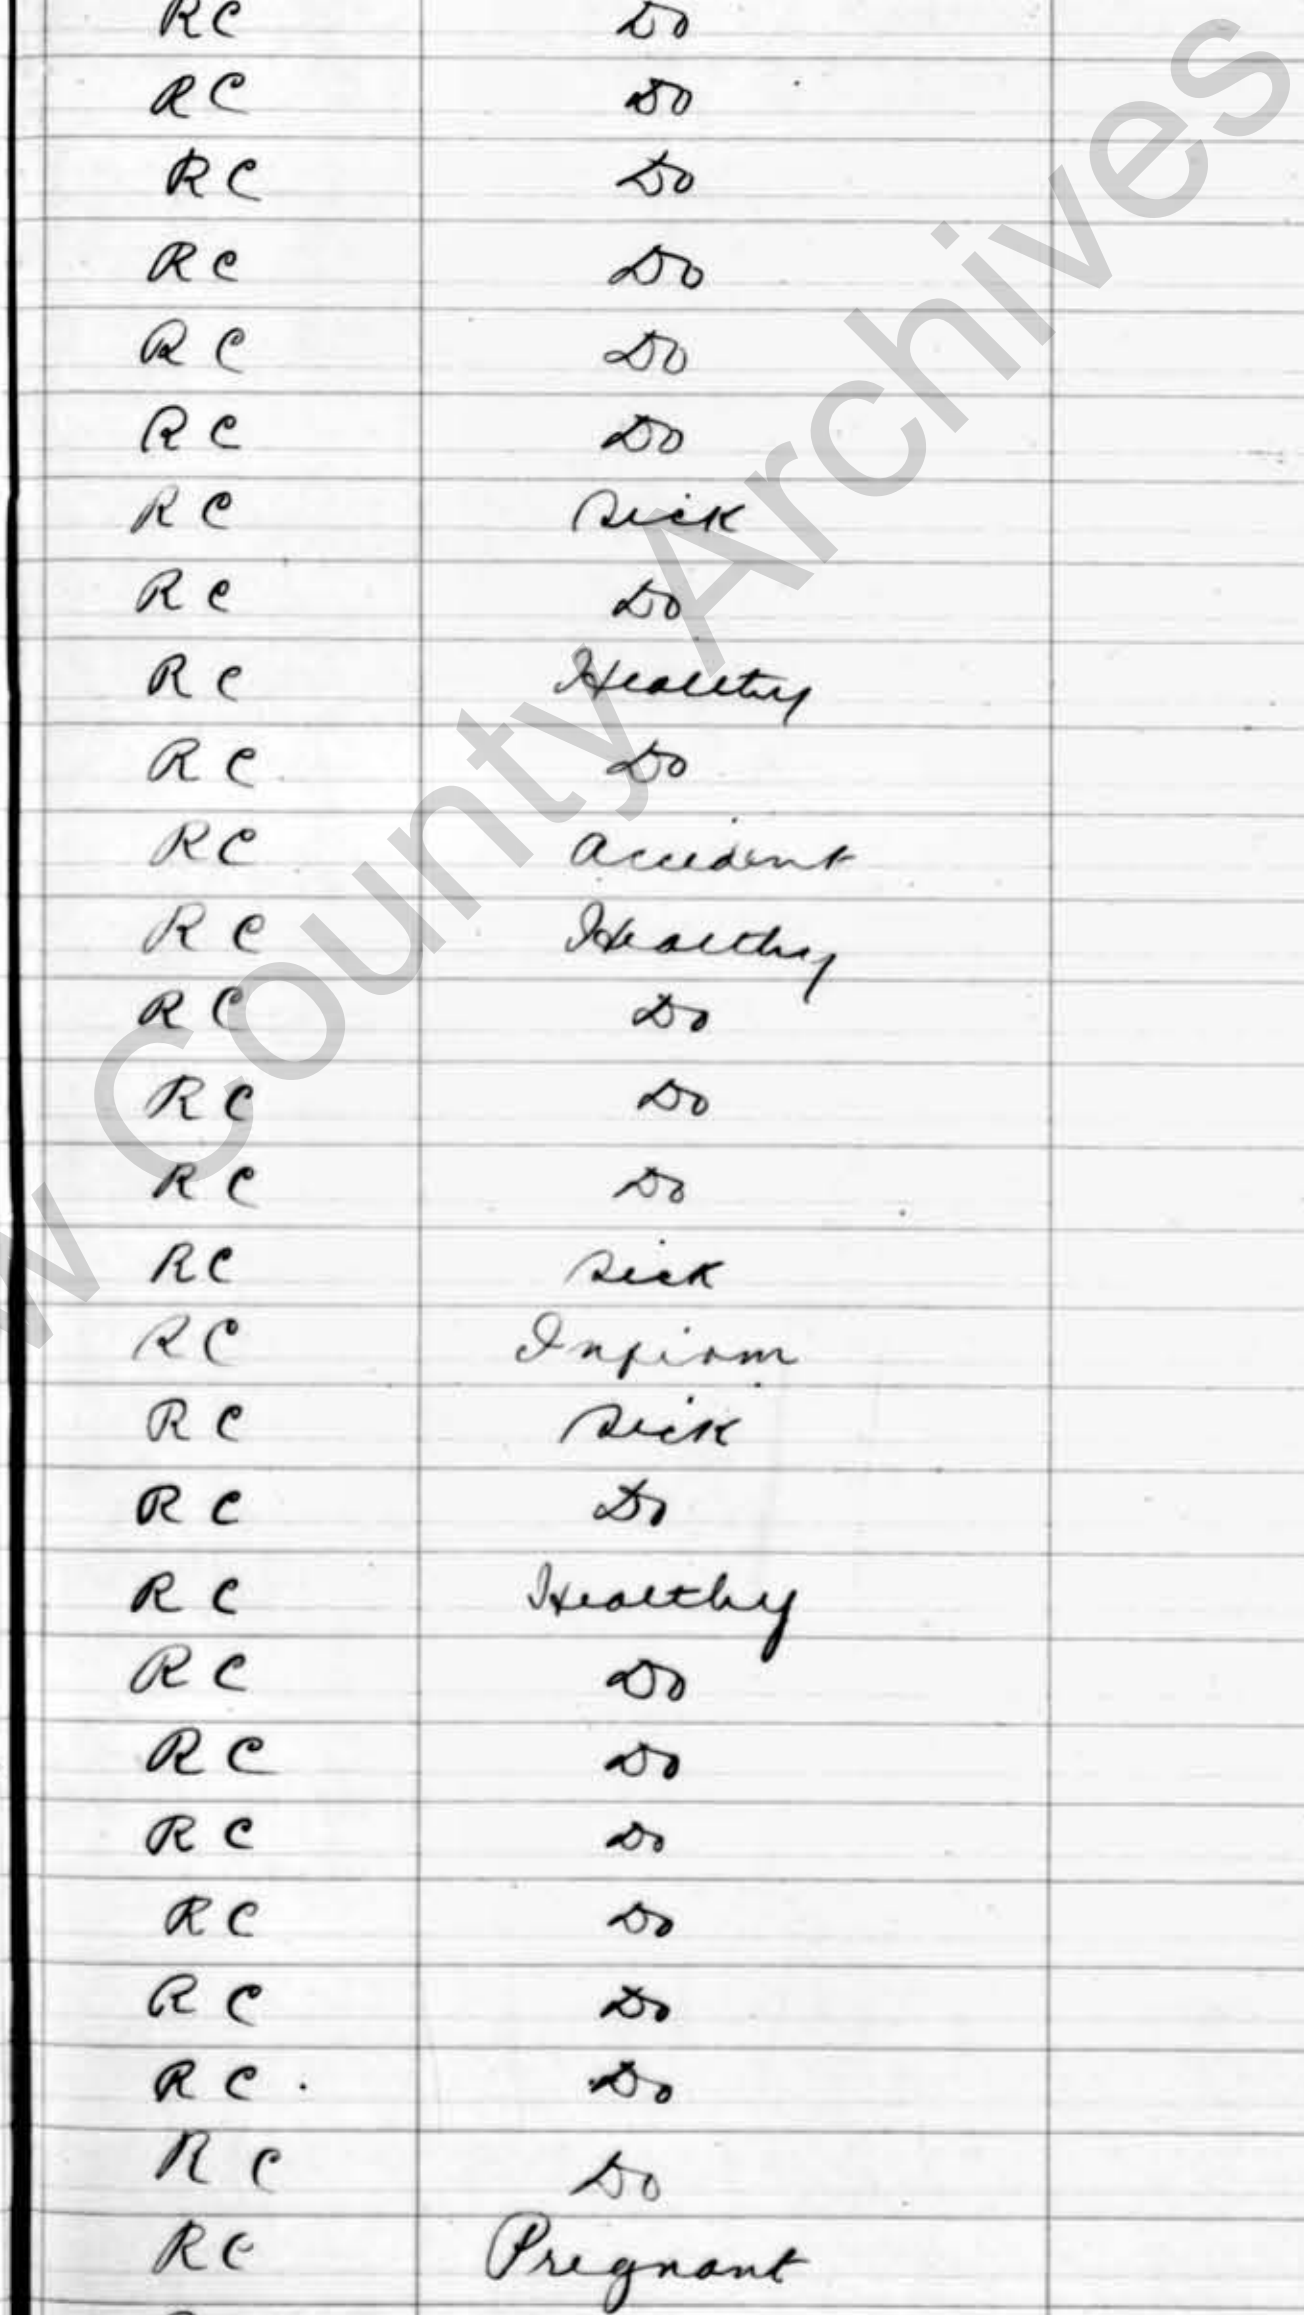 RC Do
RC Do
RC Do
RC Do
RC Do
RC Do
RC Sick
RC Do
RC Healthy
RC Do
RC Accident
RC Healthy
RC Do
RC Do
RC Do
RC Sick
RC Infirm
RC Sick
RC Do
RC Healthy
RC Do
RC Do
RC Do
RC Do
RC Do
RC . Do
RC Do
RC Pregnant
w County Archives